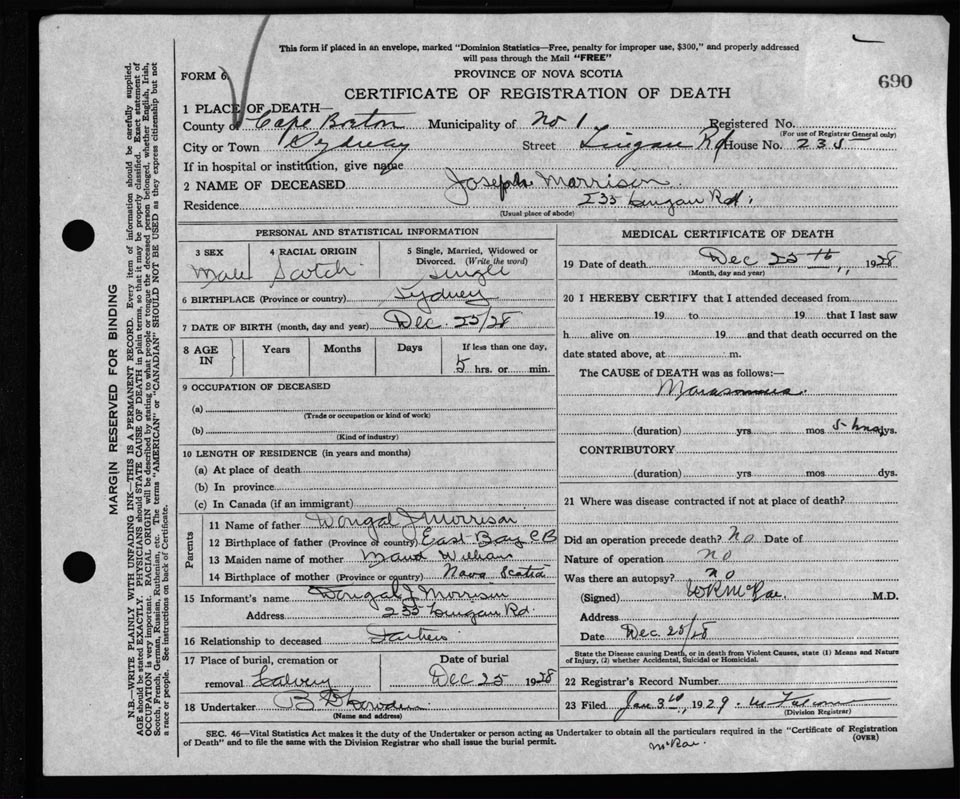 This form if placed in an envelope, marked "Dominion Statistics—Free, penalty for improper use, $300," and properly addressed
will pass through the Mail "FREE"
FORM 6
PROVINCE OF NOVA SCOTIA
690
CERTIFICATE OF REGISTRATION OF DEATH
1 PLACE OF DEATH—
County of Cape Breton Municipality of No 1 Registered No.
(For use of Registrar General only)
City or Town Sydney Street Lingan Rd House No. 235
If in hospital or institution, give name
2 NAME OF DECEASED Joseph Morrison
Residence 235 Lingan Rd.
(Usual place of abode)
PERSONAL AND STATISTICAL INFORMATION
3 SEX 4 RACIAL ORIGIN 5 Single, Married, Widowed or
Divorced. (Write the word)
Male Scotch Single
6 BIRTHPLACE (Province or country) Sydney
7 DATE OF BIRTH (month, day and year) Dec. 25/28
8 AGE IN Years Months Days If less than one day,
5 hrs. or min.
9 OCCUPATION OF DECEASED
(a)
(Trade or occupation or kind of work)
(b)
(Kind of industry)
10 LENGTH OF RESIDENCE (in years and months)
(a) At place of death
(b) In province
(c) In Canada (if an immigrant)
Parents
11 Name of father Dougal J Morrison
12 Birthplace of father (Province or country) East Bay C B
13 Maiden name of mother Maud William
14 Birthplace of mother (Province or country) Nova Scotia
15 Informant's name Dougal J Morrison
Address 235 Lingan Rd.
16 Relationship to deceased Father
17 Place of burial, cremation or Date of burial
removal Calvery Dec 25 1928
18 Undertaker
(Name and address)
MEDICAL CERTIFICATE OF DEATH
19 Date of death Dec 25th 1928
(Month, day and year)
20 I HEREBY CERTIFY that I attended deceased from
19 to 19 that I last saw
h alive on 19 and that death occurred on the
date stated above, at m.
The CAUSE of DEATH was as follows:—
(duration) yrs mos 5 hrs dys.
CONTRIBUTORY
(duration) yrs mos dys.
21 Where was disease contracted if not at place of death?
Did an operation precede death? No Date of
Nature of operation no
Was there an autopsy? no
(Signed) McRae. M.D.
Address
Date Dec 25/28
State the Disease causing Death, or in death from Violent Causes, state (1) Means and Nature
of Injury, (2) whether Accidental, Suicidal or Homicidal.
22 Registrar's Record Number
23 Filed Jan 3rd, 1929.
(Division Registrar)
SEC. 46—Vital Statistics Act makes it the duty of the Undertaker or person acting as Undertaker to obtain all the particulars required in the "Certificate of Registration
of Death" and to file the same with the Division Registrar who shall issue the burial permit.
(OVER)
McRae.
MARGIN RESERVED FOR BINDING
N.B.—WRITE PLAINLY WITH UNFADING INK—THIS IS A PERMANENT RECORD. Every item of information should be carefully supplied.
AGE should be stated EXACTLY. PHYSICIANS should STATE CAUSE OF DEATH in plain terms, so that it may be properly classified. Exact statement of
OCCUPATION is very important. RACIAL ORIGIN will be described by stating to what people or tongue the deceased person belonged, whether English, Irish,
Scotch, French, German, Russian, Ruthenian, etc. The terms "AMERICAN" or "CANADIAN" SHOULD NOT BE USED as they express citizenship but not
a race or people. See instructions on back of Certificate.